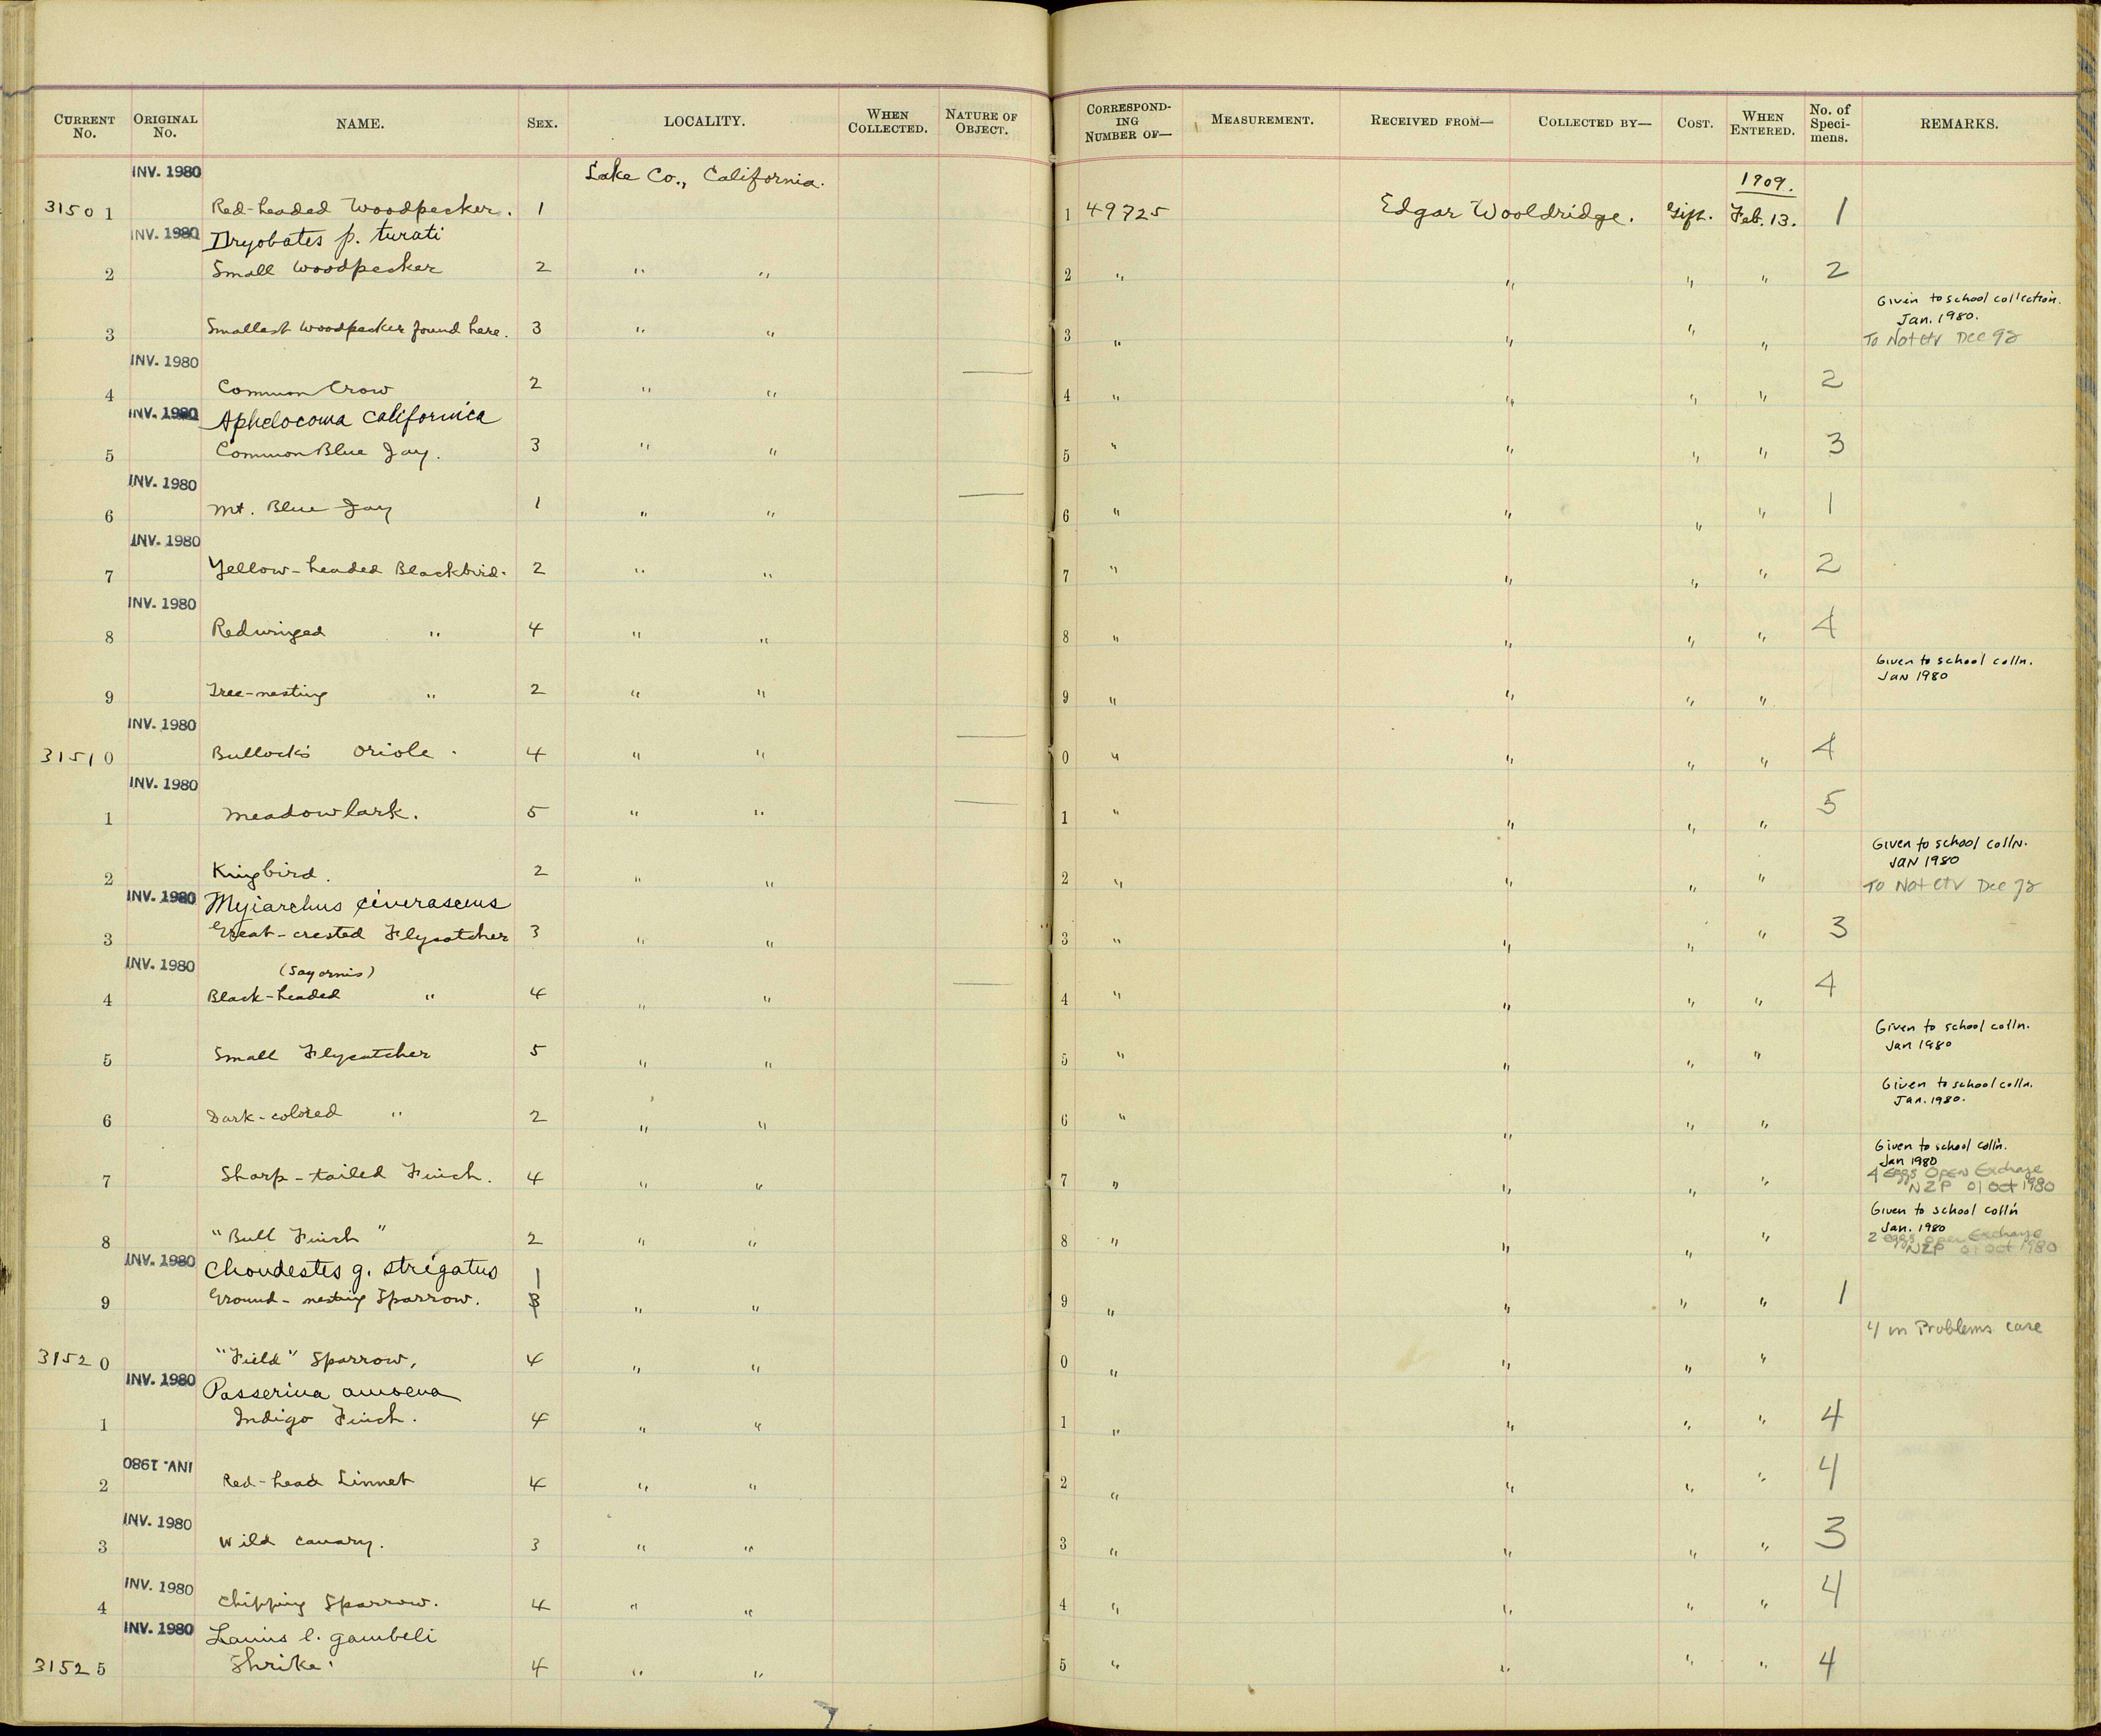 CURRENT No. ORIGINAL No. NAME. SEX. LOCALITY. WHEN COLLECTED. NATURE OF OBJECT. CORRESPONDING NUMBER OF— MEASUREMENT. RECEIVED FROM— COLLECTED BY— COST. WHEN ENTERED. No. of Specimens. REMARKS.
INV. 1980 Lake Co., California. 1909.
31501 Red-headed Woodpecker. 1 1 49725 Edgar Wooldridge. Gift. Feb. 13. 1
INV. 1980 Dryobates p. turati
2 Small Woodpecker 2 " " 2 " " " " 2
Given to school collection.
Jan. 1980.
3 Smallest Woodpecker found here. 3 " " 3 " " " " To Not ctr Dec 92
INV. 1980
4 Common Crow 2 " " — 4 " " " " 2
INV. 1980 Aphelocoma californica
5 Common Blue Jay. 3 " " 5 " " " " 3
INV. 1980
6 Mt. Blue Jay 1 " " — 6 " " " " 1
INV. 1980
7 Yellow-headed Blackbird. 2 " " 7 " " " " 2
INV. 1980
8 Redwinged " 4 " " 8 " " " " 4
Given to school colln.
JAN 1980
9 Tree-nesting " 2 " " 9 " " " "
INV. 1980
31510 Bullock's Oriole. 4 " " — 0 " " " " 4
INV. 1980
1 Meadowlark. 5 " " — 1 " " " " 5
Given to school colln.
JAN 1980
2 Kingbird. 2 " " 2 " " " " To Not ctr Dec 92
INV. 1980 Myiarchus cinerascens
3 Great-crested Flycatcher 3 " " 3 " " " " 3
INV. 1980 (Sayornis)
4 Black-headed " 4 " " — 4 " " " " 4
Given to school colln.
Jan 1980
5 Small Flycatcher 5 " " 5 " " " "
Given to school colln.
Jan. 1980.
6 Dark-colored " 2 " " 6 " " " "
Given to school colln.
Jan 1980
4 eggs Open Exchange
7 Sharp-tailed Finch. 4 " " 7 " " " " NZP 01 Oct 1980
Given to school colln
Jan. 1980
2 eggs Open Exchange
8 "Bull Finch" 2 " " 8 " " " " NZP 01 Oct 1980
INV. 1980 Chondestes g. strigatus 1
9 Ground-nesting Sparrow. 3 " " 9 " " " " 1
4 in Problems case
31520 "Field" Sparrow, 4 " " 0 " " " "
INV. 1980 Passerina amoena
1 Indigo Finch. 4 " " 1 " " " " 4
INV. 1980
2 Red-head Linnet 4 " " 2 " " " " 4
INV. 1980
3 Wild canary. 3 " " 3 " " " " 3
INV. 1980
4 Chipping Sparrow. 4 " " 4 " " " " 4
INV. 1980 Lanius l. gambeli
31525 Shrike. 4 " " 5 " " " " 4